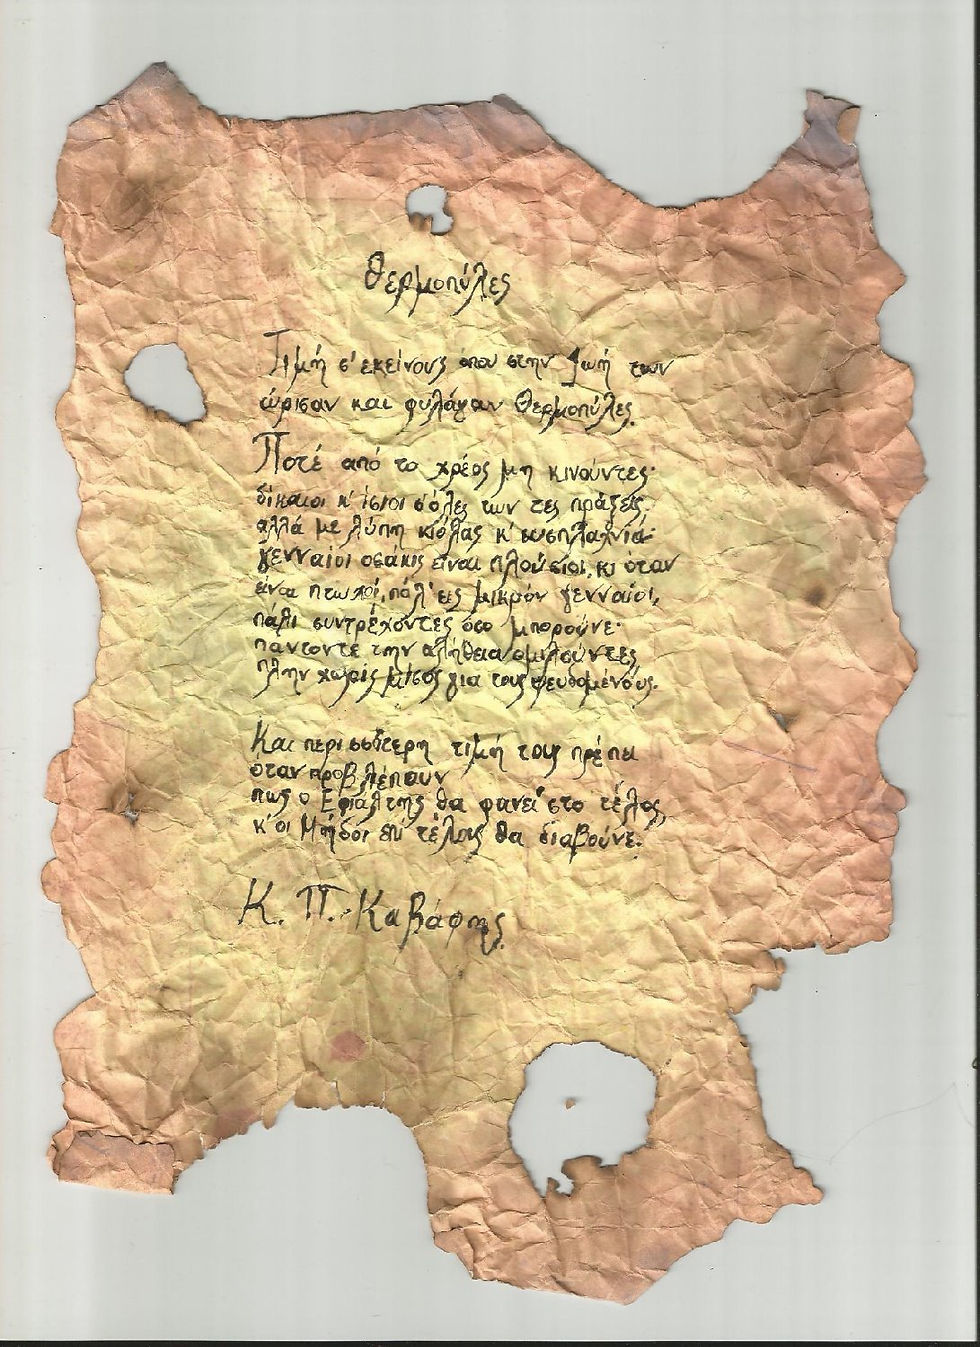 Θερμοπύλες
Τιμή σ' εκείνους όπου στην ζωή των
ώρισαν και φυλάγαν Θερμοπύλες.
Ποτέ από το χρέος μη κινούντες·
δίκαιοι κ' ίσιοι σ' όλες των τες πράξεις,
αλλά με λύπη κιόλας κ' ευσπλαχνία·
γενναίοι οσάκις είναι πλούσιοι, κι όταν
είναι πτωχοί, πάλ' εις μικρόν γενναίοι,
πάλι συντρέχοντες όσο μπορούνε·
πάντοτε την αλήθεια ομιλούντες,
πλην χωρίς μίσος για τους ψευδομένους.
Και περισσότερη τιμή τους πρέπει
όταν προβλέπουν
πως ο Εφιάλτης θα φανεί στο τέλος,
κ' οι Μήδοι επί τέλους θα διαβούνε.
Κ. Π. Καβάφης